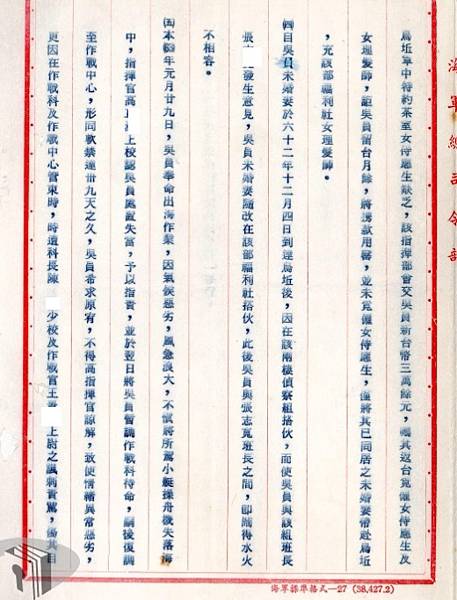 海軍總司令部
烏坵軍中特約茶室女侍應生缺乏，該指揮部曾交吳員新台幣三萬餘元，囑其返台覓僱女侍應生及
女理髮師，詎吳員留台月餘，將携款用罄，並未覓僱女侍應生，僅將其已同居之未婚妻帶赴烏坵
，充該部福利社女理髮師。
㈣自吳員未婚妻於六十二年十二月四日到達烏坵後，因在該兩棲偵察組搭伙，而使吳員與該組班長
張 發生意見，吳員未婚妻隨改在該部福利社搭伙，此後吳員與張志 班長之間，即鬧得水火
不相容。
㈤本63年元月廿九日，吳員奉命出海作業，因氣候惡劣，風急浪大，不慎將所駕小艇操舟機失落海
中，指揮官高 上校認吳員處置失當，予以指責，並於翌日將吳員暫調作戰科待命，嗣後復調
至作戰中心，形同軟禁達卅九天之久，吳員希求原宥，不得高指揮官諒解，致使情緒異常惡劣，
更因在作戰科及作戰中心管束時，時遭科長陳 少校及作戰官王 上尉之諷刺責罵，傷其自
海軍標準格式—27 (38,427.2)